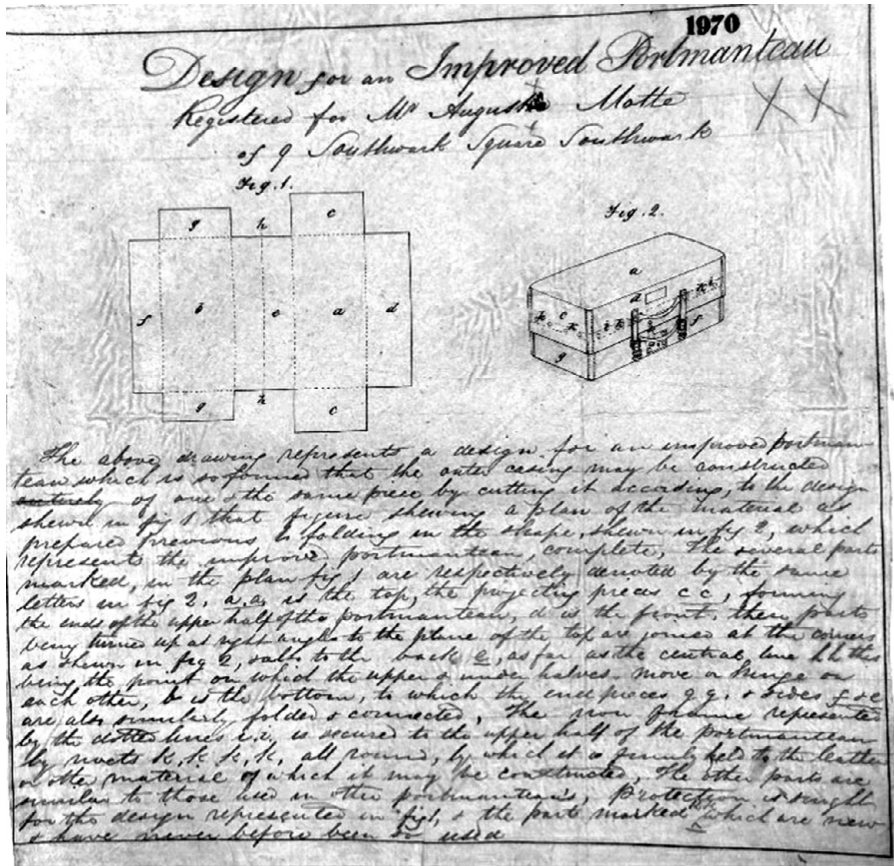 1970
Design for an Improved Portmanteau
Registered for Mr August Motte
of 9 Southwark Square Southwark
Fig. 1.
Fig. 2.
g h c
f b e a d
g h c
a
d
c
k k i i k k
g f
The above drawing represents a design for an improved portman-
teau which is so formed that the outer casing may be constructed
entirely of one & the same piece by cutting it according, to the design
shewn in fig 1 that figure shewing a plan of the material as
prepared previous to folding in the shape, shewn in fig 2, which
represents the improved portmanteau, complete, The several parts
marked, in the plan fig 1 are respectively denoted by the same
letters in fig 2, a, a, is the top, the projecting pieces c c, forming
the ends of the upper half of the portmanteau, d is the front, these parts
being turned up at right angles to the plane of the top are joined at the corners
as shewn in fig 2, & also to the back e, as far as the central line h h this
being the point on which the upper & under halves move or hinge on
each other, b is the bottom, to which the end pieces g g, & sides f & e
are also similarly folded & connected, The iron frame represented
by the dotted lines i. i. is secured to the upper half of the portmanteau
by rivets k, k, k, k, all round, by which it is firmly held to the leather
or other material of which it may be constructed, The other parts are
similar to those used in other portmanteau's, Protection is sought
for the design represented in fig 1, & the parts marked which are new
& have never before been so used